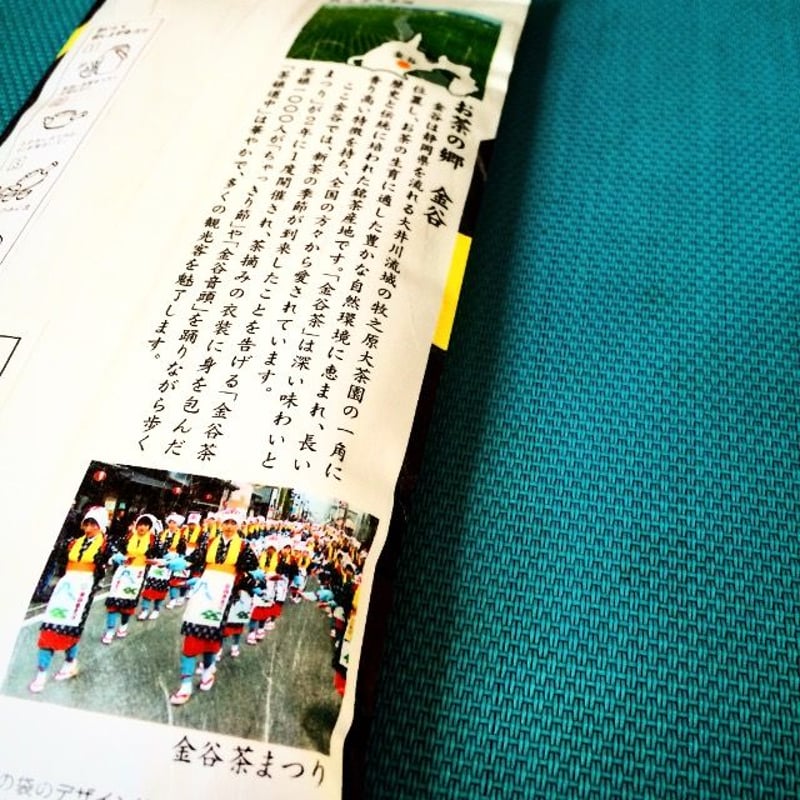 お茶の郷 金谷
金谷は静岡県を流れる大井川流域の牧之原大茶園の一角に
位置し、お茶の生育に適した豊かな自然環境に恵まれ、長い
歴史と伝統に培われた銘茶産地です。「金谷茶」は深い味わいと
香り高い特徴を持ち、全国の方々から愛されています。
ここ金谷では、新茶の季節が到来したことを告げる「金谷茶
まつり」が2年に1度開催され、茶摘みの衣装に身を包んだ
茶娘1000人が「ちゃっきり節」や「金谷音頭」を踊りながら歩く
「茶娘道中」は華やかで、多くの観光客を魅了します。
金谷茶まつり
の袋のデザイン